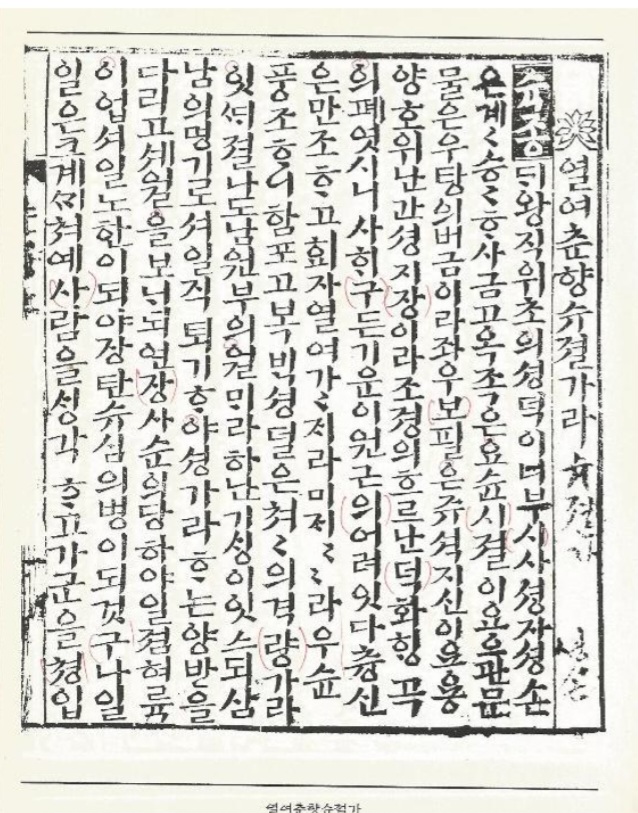 열여춘향슈졀가라
슉죵ᄃᆡ왕직위초의셩덕이너부시사셩자셩손
은계〻승〻ᄒᆞ사금고옥족은요슌시졀이요으관문
물은우탕의버금이라좌우보필은쥬셕지신이요용
양호위난간셩지장이라조졍의흐르난덕화항곡
의폐엿시니사ᄒᆡ구든기운이원근의어려잇다츙신
은만조ᄒᆞ고회자열여가〻ᄌᆡ라미ᄌᆡ〻〻라우슌
풍조ᄒᆞ니함포고복ᄇᆡᆨ셩덜은쳐〻의격량가라
잇ᄯᆡ졀나도남원부의월ᄆᆡ라하난기ᄉᆡᆼ이잇스되삼
남의명기로셔일직퇴기ᄒᆞ야셩가라ᄒᆞ는양반을
다리고셰월을보ᄂᆡ되연장사순의당하야일졈혀륙
이업셔일노한이되야장탄슈심의병이되것구나일
일은크게ᄭᆡ쳐예사람을ᄉᆡᆼ각ᄒᆞ고가군을쳥입
열여춘향슈절가